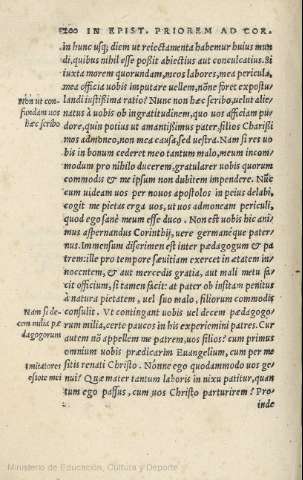 200 IN EPIST. PRIOREM AD COR.
in hunc usq; diem ut reiectamenta habemur huius mun
di, quibus nihil esse poßit abiectius aut conculcatius. Si
iuxta morem quorundam, meos labores, mea pericula,
mea officia uobis imputare uellem, nónne foret expostu
landi iustißima ratio? Nunc non hæc scribo, uelut alie/
Non ut con
natus à uobis ob ingratitudinem, quo uos afficiam pu/
fundam uos
dore, quin potius ut amantißimus pater, filios Charißi
hæc scribo
mos admoneo, non mea causa, sed uestra. Nam si res uo
bis in bonum cederet meo tantum malo, meum incom/
modum pro nihilo ducerem, gratularer uobis quorum
commodis & me ipsum non dubitem impendere. Nũc
cum uideam uos per nouos apostolos in peius delabi,
cogit me pietas erga uos, ut uos admoneam periculi,
quod ego sanè meum esse duco. Non est uobis hic ani/
mus aspernandus Corinthij, uere germanéque pater/
nus. Immensum discrimen est inter pædagogum & pa
trem: ille pro tempore sæuitiam exercet in ætatem in/
nocentem, & aut mercedis gratia, aut mali metu fa/
cit officium, si tamen facit: at pater ob insitam penitus
à natura pietatem, uel suo malo, filiorum commodis
Nam si de/
consulit. Ut contingant uobis uel decem pædagogo/
cem milia pæ
rum milia, certe paucos in his experiemini patres. Cur
dagogorum
autem nõ appellem me patrem, uos filios? cum primus
omnium uobis prædicarim Euangelium, cum per me
Imitatores
sitis renati Christo. Nónne ego quodammodo uos ge/
estote mei
nui? Quæ mater tantum laboris in nixu patitur, quan
tum ego passus, cum uos Christo parturirem? Pro/
inde
Ministerio de Educación, Cultura y Deporte